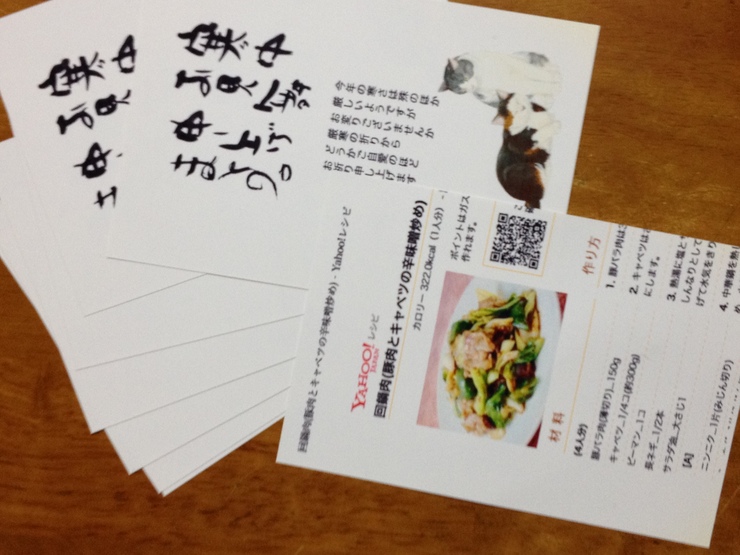 寒中
お見
申し
寒中
お見舞
申し上げ
ます。
今年の寒さは殊のほか
厳しいようですが
お変りございませんか
厳寒の折りから
どうかご自愛のほど
お祈り申し上げます
回鍋肉(豚肉とキャベツの辛味噌炒め) - Yahoo!レシピ
YAHOO! レシピ
JAPAN
回鍋肉(豚肉とキャベツの辛味噌炒め)
カロリー 322.0kcal (1人分)
ポイントはガス
作れます。
材料
(4人分)
豚バラ肉(薄切り)...150g
キャベツ...1/4コ(約300g)
ピーマン...1コ
長ネギ...1/2本
サラダ油...大さじ1
[A]
ニンニク...1片(みじん切り)
作り方
1. 豚バラ肉は
2. キャベツは
にします。
3. 熱湯に塩と
しんなりとして
げて水気をきり
4. 中華鍋を熱し